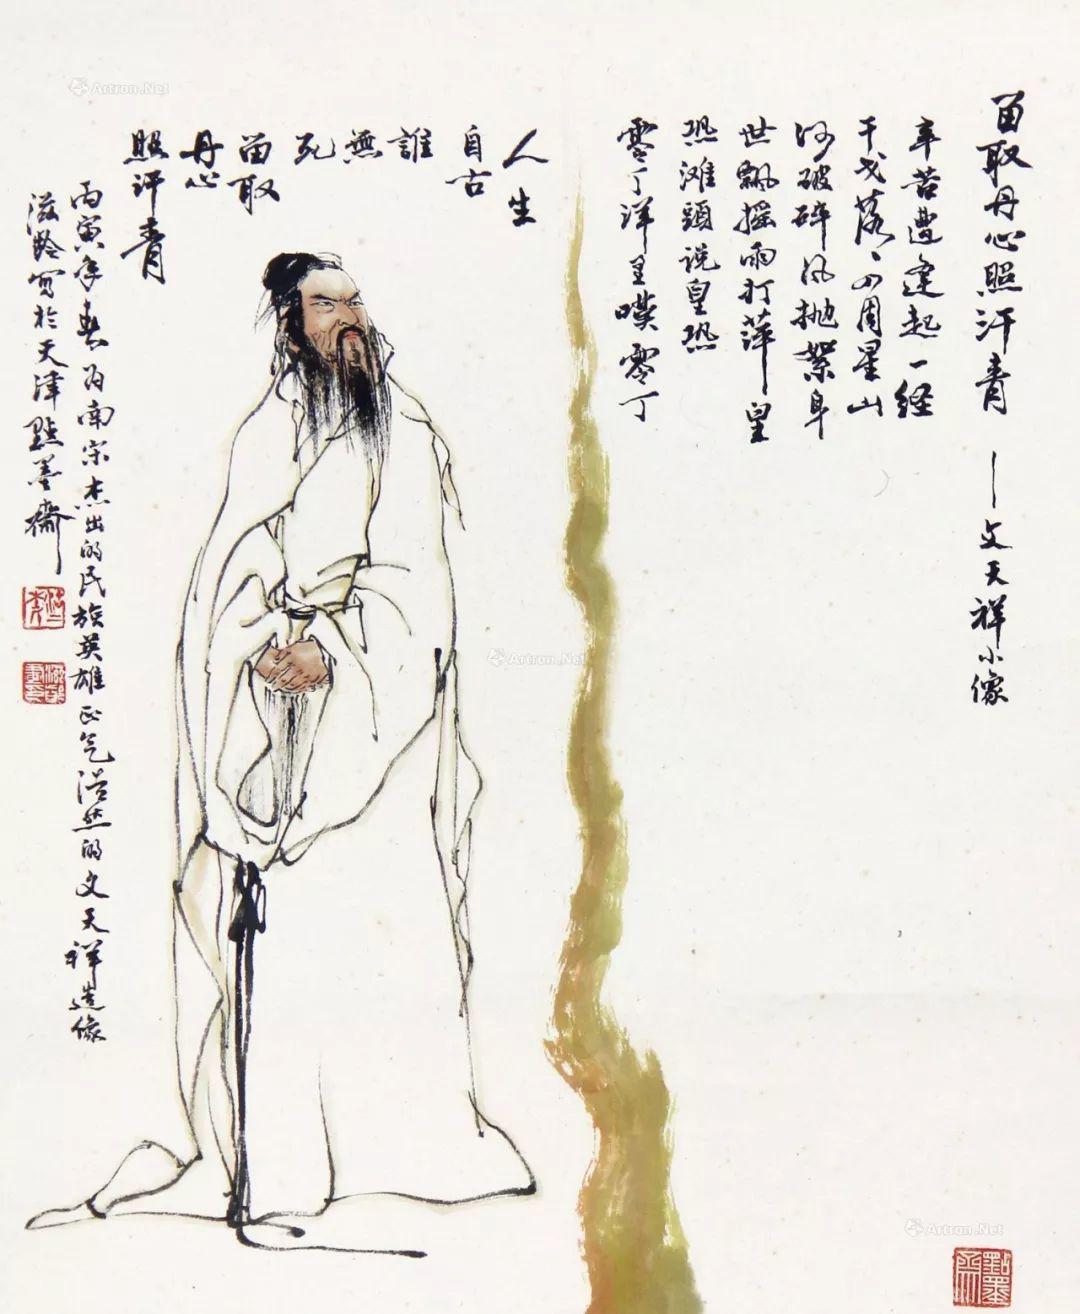 留取丹心照汗青 — 文天祥小像
辛苦遭逢起一经
干戈落、四周星山
河破碎风抛絮身
世飄摇雨打萍皇
恐滩頭说皇恐
零丁洋里嘆零丁
人生
自古
誰
無
死
留取
丹心
照汗青
丙寅年春为南宋杰出的民族英雄正气浩然的文天祥造像
滋龄写於天津點墨齋
Artron.Net
Artron.Net
Artron.Net